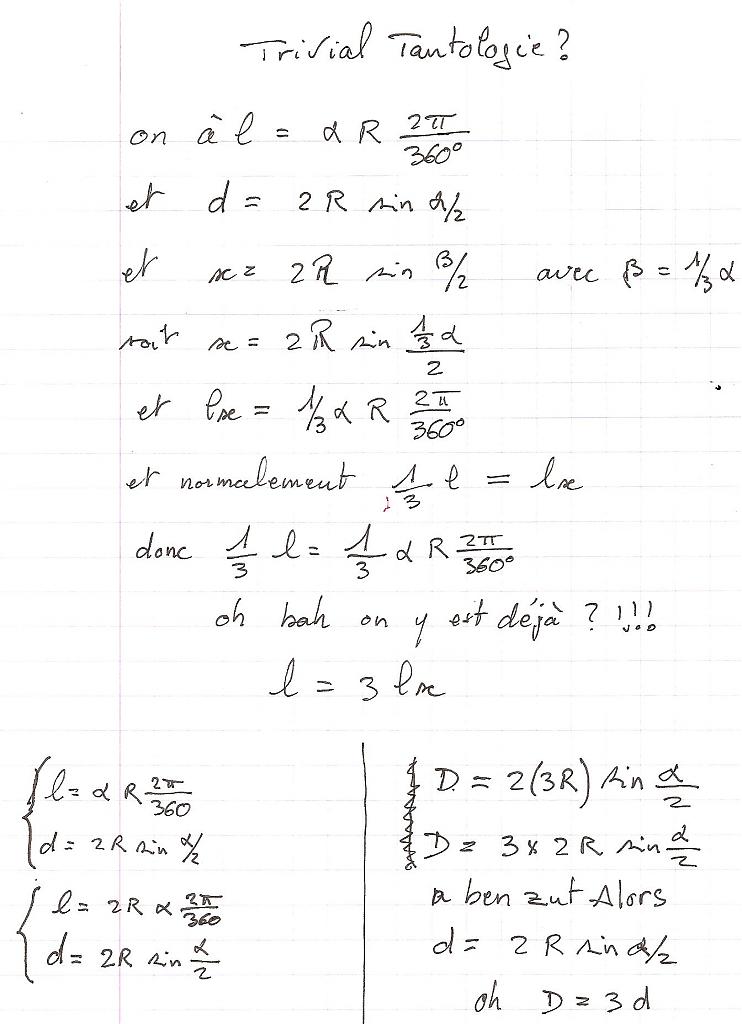 Trivial Tautologie?
on à l = α R 2π/360°
et d = 2R sin α/2
et x = 2R sin β/2 avec β = 1/3 α
soit x = 2R sin (1/3 α)/2
et lx = 1/3 α R 2π/360°
et normalement 1/3 l = lx
donc 1/3 l = 1/3 α R 2π/360°
oh bah on y est déjà ? !!!
l = 3 lx
l = α R 2π/360
d = 2R sin α/2
l = 2R α 2π/360
d = 2R sin α/2
D = 2(3R) sin α/2
D = 3 x 2R sin α/2
a ben zut Alors
d = 2R sin α/2
oh D = 3d